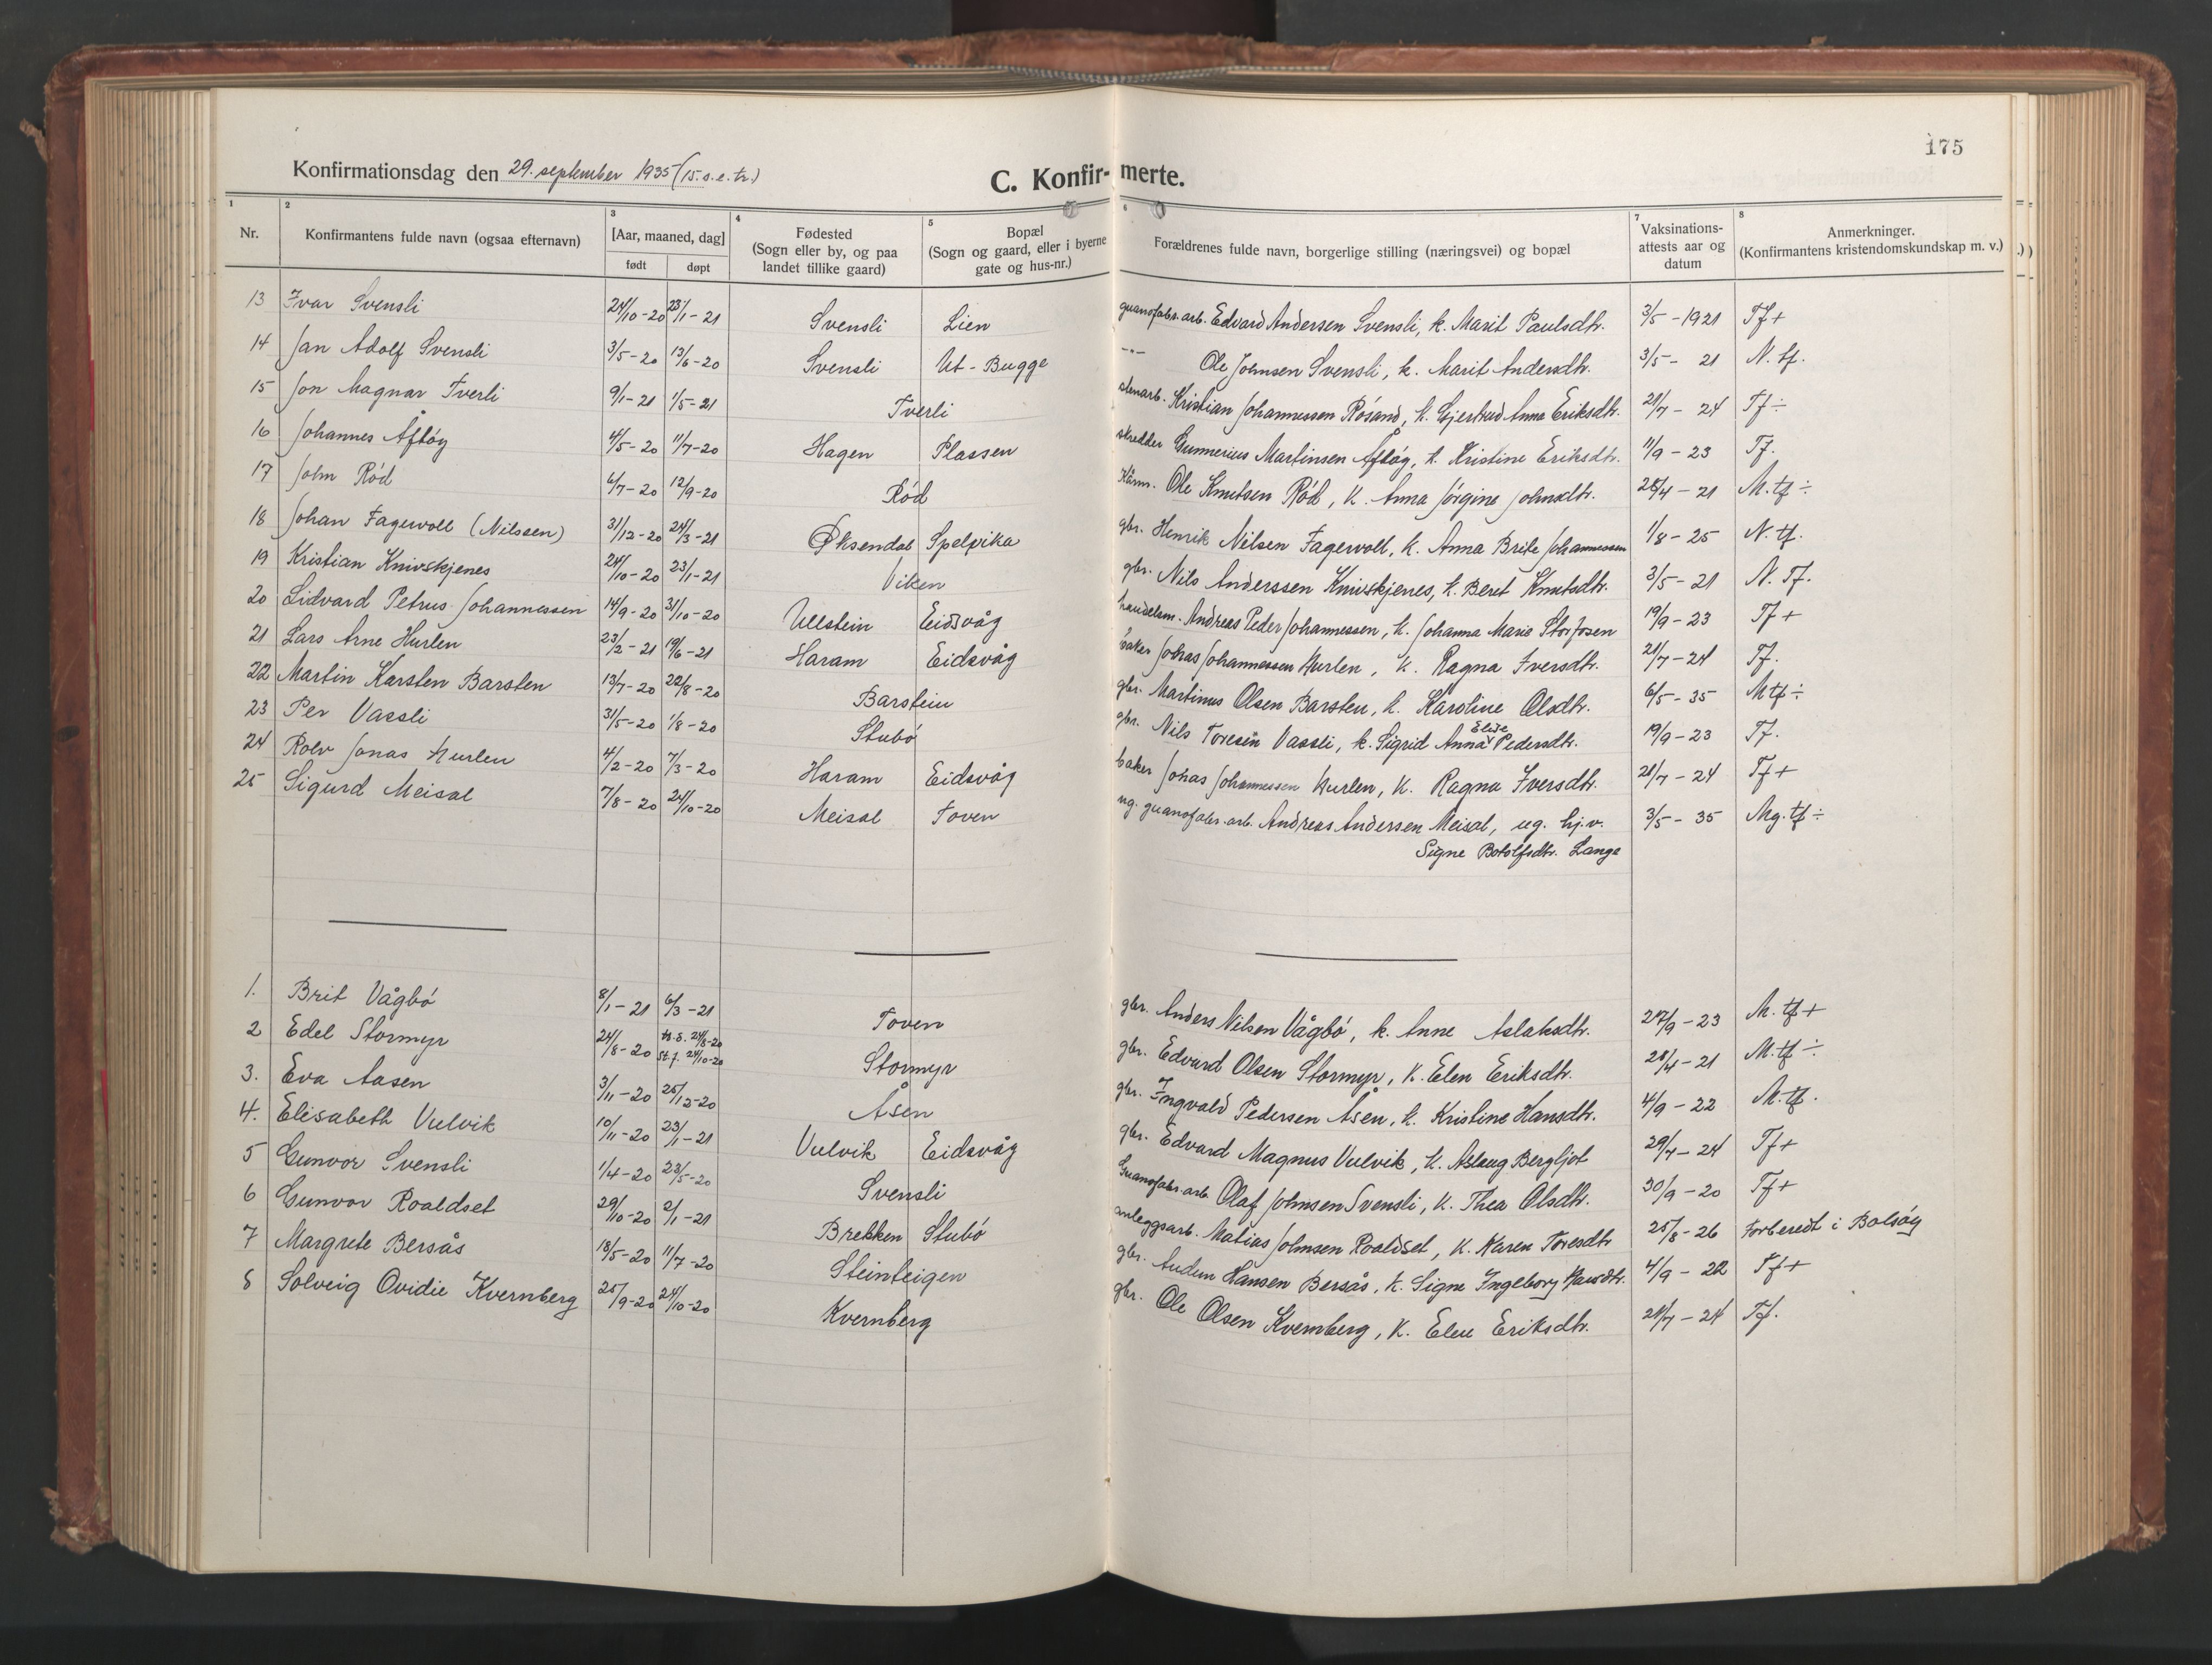 175
Konfirmationsdag den 29. september 1935 (15. s. e. tr.)
C. Konfir- merte.
1 2 3 4 5 6 7 8
Nr. Konfirmantens fulde navn (ogsaa efternavn) [Aar, maaned, dag] født døpt Fødested (Sogn eller by, og paa landet tillike gaard) Bopæl (Sogn og gaard, eller i byerne gate og hus-nr.) Forældrenes fulde navn, borgerlige stilling (næringsvei) og bopæl Vaksinations-attests aar og datum Anmerkninger. (Konfirmantens kristendomskundskap m. v.)
13 Ivar Svensli 24/10-20 23/1-21 Svensli Lien guanofabr. arb. Edvard Andersen Svensli, k. Marit Paulsdtr. 3/5-1921 Tf+
14 Jan Adolf Svensli 3/5-20 13/6-20 Svensli Ut-Bugge -"- Ole Johnsen Svensli, k. Marit Andersdtr. 3/5-21 N. tf.
15 Jon Magnar Tverli 9/1-21 1/5-21 Tverli stenarb. Kristian Johannessen Rósand, k. Gjertrud Anna Eriksdtr. 21/7-24 Tf÷
16 Johannes Åflóy 4/5-20 11/7-20 Hagen Plassen skredder Gunnerius Martinsen Åflóy, k. Kristine Eriksdtr. 11/9-23 Tf.
17 John Ród 6/7-20 12/9-20 Ród Kårm. Ole Knutsen Ród, k. Anna Jórgine Johnsdtr. 28/4-21 M. tf÷
18 Johan Fagervoll (Nilssen) 31/12-20 24/3-21 Øksendal Spelpika gbr. Henrik Nilsen Fagervoll, k. Anna Brite Johannessen 1/8-25 N. tf.
19 Kristian Knivskjenes 24/10-20 23/1-21 Viken gbr. Nils Anderssen Knivskjenes, k. Beret Knutsdtr. 3/5-21 N. Tf.
20 Lidvard Petrus Johannessen 14/9-20 31/10-20 Ullstein Eidsvåg handelsm. Andreas Peder Johannessen, k. Johanna Marie Storfosen 19/9-23 Tf+
21 Lars Arne Hurlen 23/2-21 19/6-21 Haram Eidsvåg baker Johas Johannessen Hurlen, k. Ragna Iversdtr. 21/7-24 Tf.
22 Martin Karsten Barsten 13/7-20 22/8-20 Barstein gbr. Martinus Olsen Barsten, k. Karoline Olsdtr. 6/5-35 M tf÷
23 Per Vassli 31/5-20 1/8-20 Stubó gbr. Nils Toresen Vassli, k. Sigrid Anna Elise Pedersdtr. 19/9-23 Tf.
24 Rolv Jonas Hurlen 4/2-20 7/3-20 Haram Eidsvåg baker Johas Johannessen Hurlen, k. Ragna Iversdtr. 21/7-24 Tf+
25 Sigurd Meisal 7/8-20 24/10-20 Meisal Toven ug. guanofabr. arb. Andreas Andersen Meisal, ug. hj.v. 3/5-35 Mg. tf÷
Signe Botolfsdtr. Lange
1. Brit Vågbó 8/1-21 6/3-21 Toven gbr. Anders Nilsen Vågbó, k. Anne Aslaksdtr. 27/9-23 M. tf+
2 Edel Stormyr 24/8-20 hj.d. 24/8-20 st.f. 24/10-20 Stormyr gbr. Edvard Olsen Stormyr, k. Elen Eriksdtr. 28/4-21 M. tf÷
3. Eva Aasen 3/11-20 25/12-20 Åsen gbr. Ingvald Pedersen Åsen, k. Kristine Hansdtr. 4/9-22 M. tf.
4. Elisabeth Vulvik 10/11-20 23/1-21 Vulvik Eidsvåg gbr. Edvard Magnus Vulvik, k. Aslaug Bergljot 29/4-24 Tf+
5 Gunvor Svensli 1/4-20 23/5-20 Svensli Guanofabr. arb. Olaf Johnsen Svensli, k. Thea Olsdtr. 30/9-20 Tf+
6 Gunvor Roaldset 29/10-20 2/1-21 Brekken Stubó anleggsarb. Matias Johnsen Roaldset, k. Karen Toresdtr 25/8-26 Forberedt i Bolsóy
7 Margrete Bersås 18/5-20 11/7-20 Steinteigen gbr. Audun Hansen Bersås, k. Signe Ingeborg Hansdtr. 4/9-22 Tf+
8 Solveig Ovidie Kvernberg 25/9-20 24/10-20 Kvernberg gbr. Ole Olsen Kvernberg, k. Elen Eriksdtr. 21/7-24 Tf.